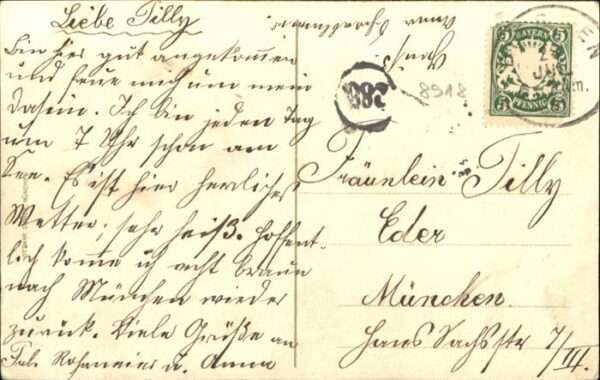 Liebe Tilly
Bin hier gut angekommen
und freue mich um mein
Dasein. Ich bin jeden Tag
um 7 Uhr schon am
See. Es ist hier herrliches
Wetter; sehr heiß. Hoffent-
lich komme ich recht braun
nach München wieder
zurück. Viele Grüße an
Anna
Anna
BAYERN
5 5
JUN
5 PFENNIG 5
8918
Fräulein Tilly
Eder
München.
Hans Sachsstr 7/III.